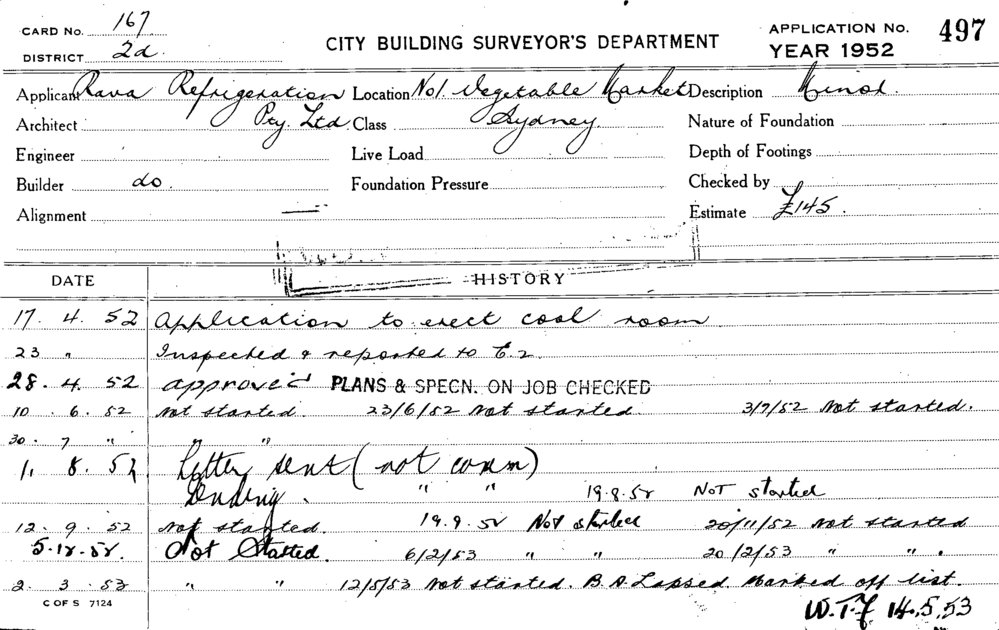 CARD No. 167
DISTRICT 2d.
CITY BUILDING SURVEYOR'S DEPARTMENT
APPLICATION No. 497
YEAR 1952
Applicant Rava Refrigeration Location No1. Vegetable Market Description Minor.
Architect Pty. Ltd. Class Sydney. Nature of Foundation
Engineer Live Load Depth of Footings
Builder do. Foundation Pressure Checked by
Alignment Estimate £145.
DATE HISTORY
17. 4. 52 Application to erect cool room
23 " Inspected & reported to
28. 4. 52 approved PLANS & SPECN. ON JOB CHECKED
10. 6. 52 Not started. 23/6/52 Not started 3/7/52 Not started.
30. 7 " " "
1. 8. 52 Letter sent (not comm)
" " 19.8.52 NOT started
12. 9. 52 Not started. 19.9.52 Not started 20/11/52 Not started
5.12.52. Not Started. 6/2/53 " " 20/2/53 " " .
2. 3. 53 " " 12/5/53 Not started. B.A. Lapsed. Marked off list.
C OF S 7124
14.5.53